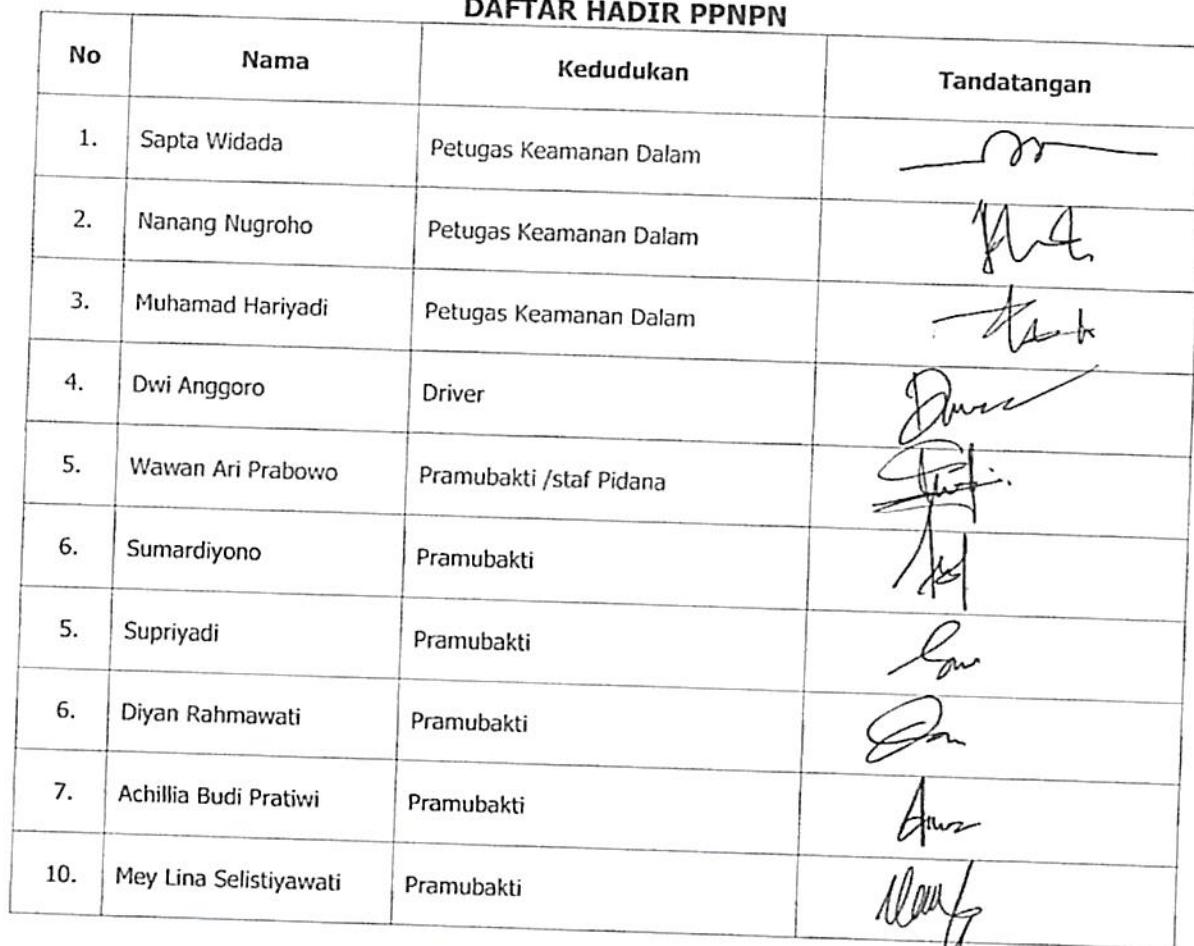 DAFTAR HADIR PPNPN
No Nama Kedudukan Tandatangan
1. Sapta Widada Petugas Keamanan Dalam
2. Nanang Nugroho Petugas Keamanan Dalam
3. Muhamad Hariyadi Petugas Keamanan Dalam
4. Dwi Anggoro Driver
5. Wawan Ari Prabowo Pramubakti /staf Pidana
6. Sumardiyono Pramubakti
5. Supriyadi Pramubakti
6. Diyan Rahmawati Pramubakti
7. Achillia Budi Pratiwi Pramubakti
10. Mey Lina Selistiyawati Pramubakti